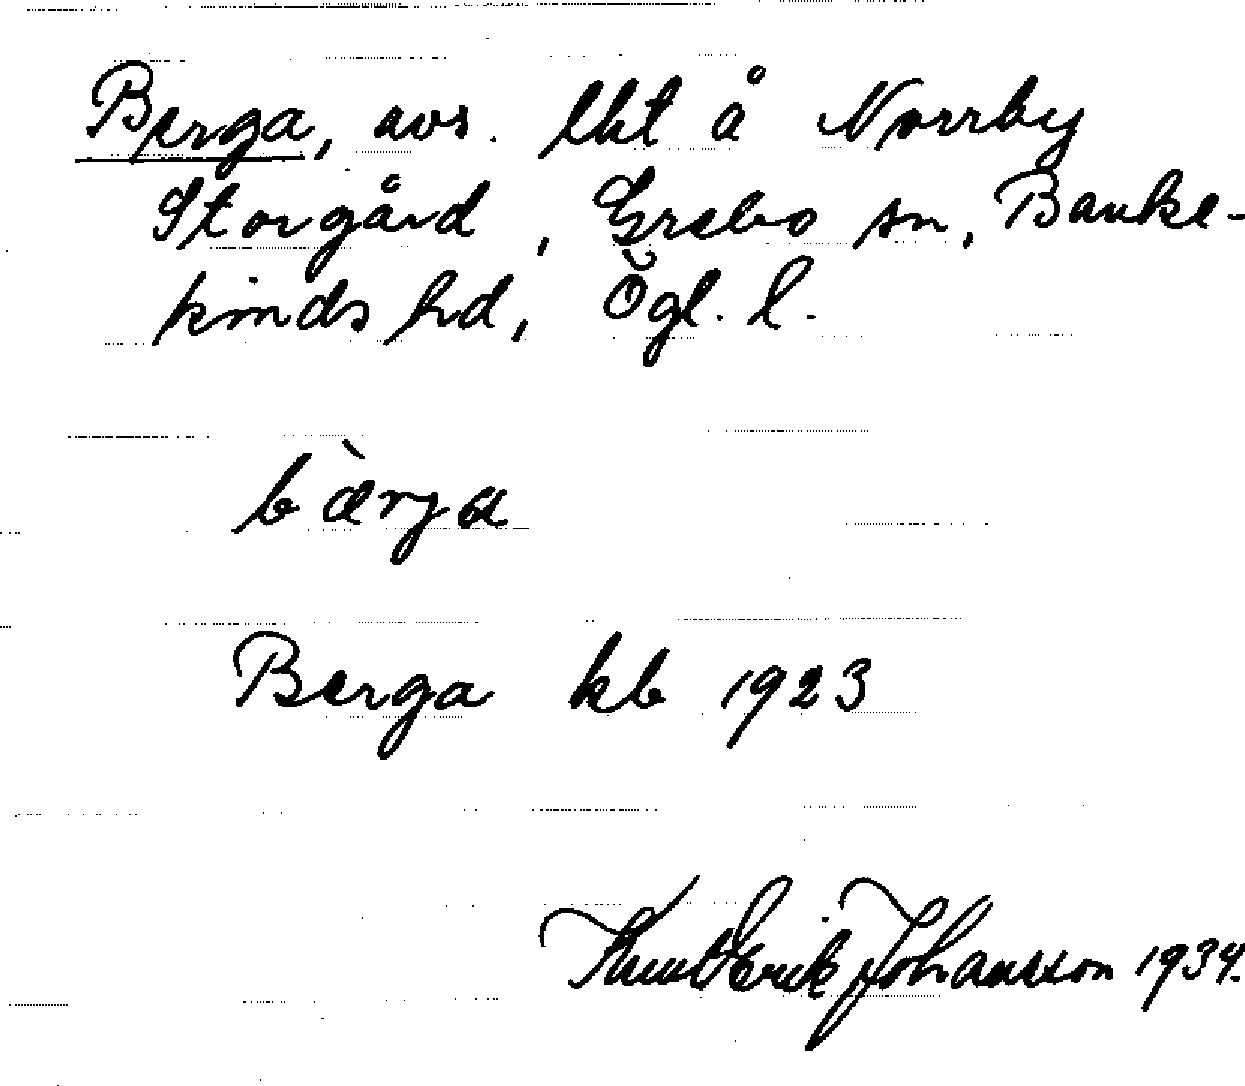 Berga, avs. lht å Norrby
Storgård, Grebo sn, Banke-
kinds hd, Ögl. l.
bæ̀rga
Berga kb 1923
Knut Erik Johansson 1934.